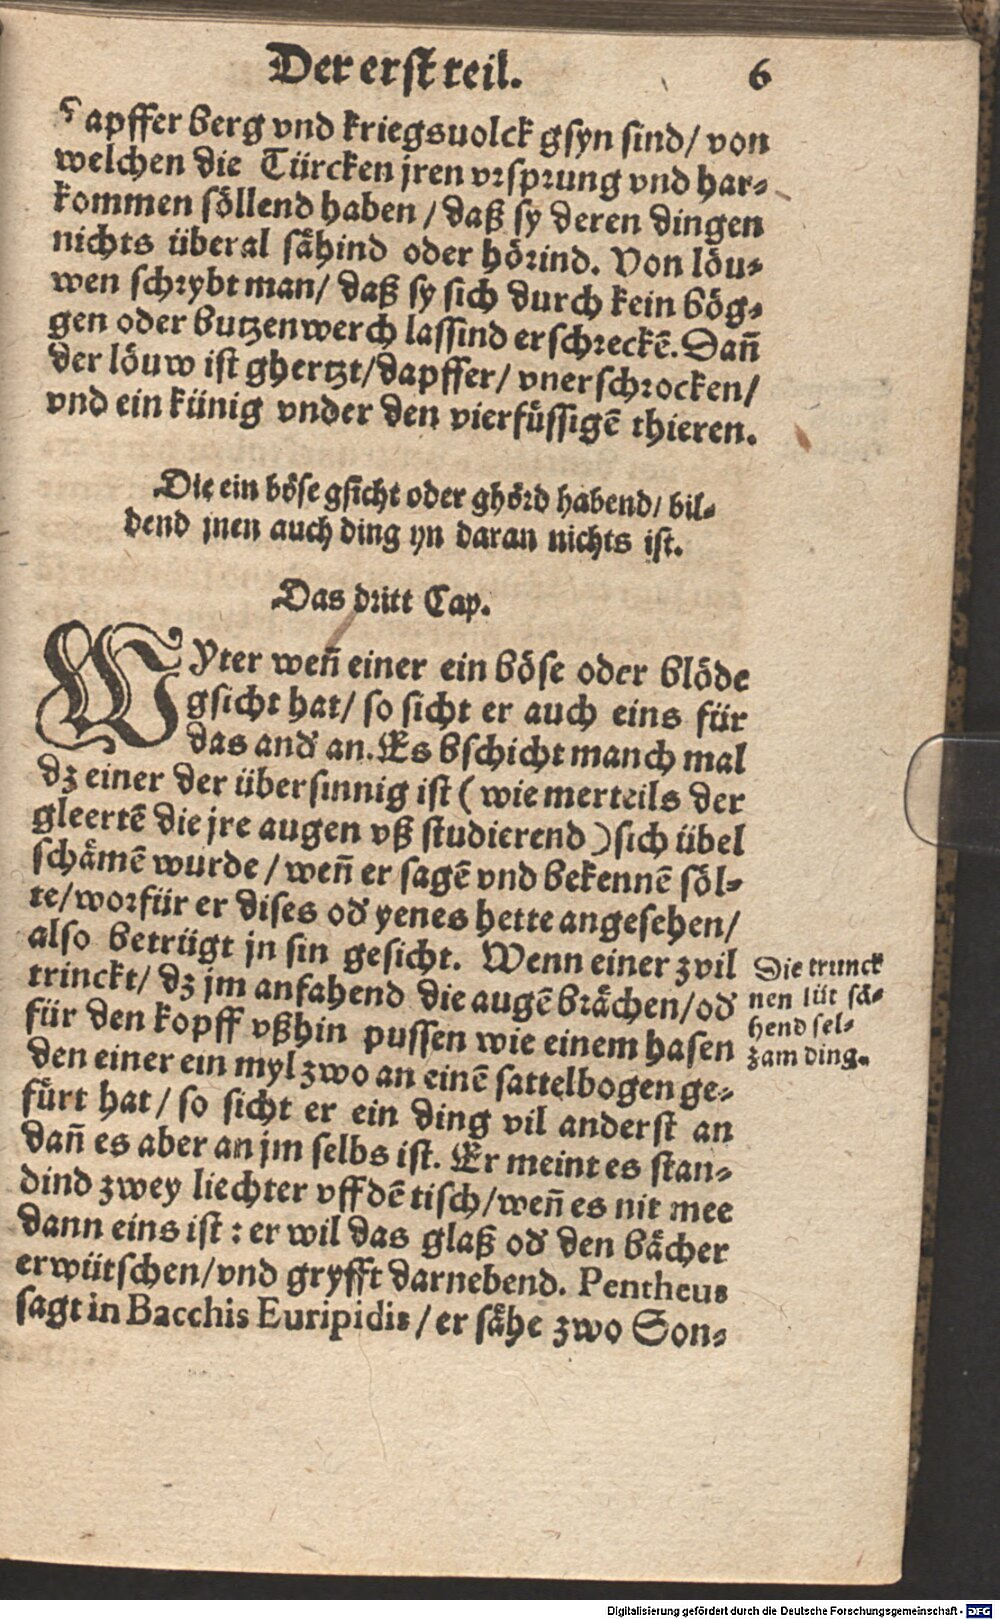 Der erst teil. 6
Tapffer berg vnd kriegsuolck gsyn sind/ von
welchen die Türcken jren vrsprung vnd har-
kommen söllend haben / daß sy deren dingen
nichts überal sähind oder hörind. Von löu-
wen schrybt man/ daß sy sich durch kein bög-
gen oder butzenwerch lassind erschreckẽ. Dañ
der löuw ist ghertzt/dapffer/ vnerschrocken/
vnd ein künig vnder den vierfüssigẽ thieren.
Die ein böse gsicht oder ghörd habend/ bil-
dend jnen auch ding yn daran nichts ist.
Das dritt Cap.
WYter weñ einer ein böse oder blöde
gsicht hat/ so sicht er auch eins für
das and' an. Es bschicht manch mal
dz einer der übersinnig ist ( wie merteils der
gleertẽ die jre augen vß studierend ) sich übel
schämẽ wurde / weñ er sagẽ vnd bekennẽ söl-
te/worfür er dises od' yenes hette angesehen/
also betrügt jn sin gesicht. Wenn einer zvil
trinckt/ dz jm anfahend die augẽ brächen/od'
für den kopff vßhin pussen wie einem hasen
den einer ein myl zwo an einẽ sattelbogen ge-
fürt hat / so sicht er ein ding vil anderst an
dañ es aber an jm selbs ist. Er meint es stan-
dind zwey liechter vff dẽ tisch/weñ es nit mee
dann eins ist : er wil das glaß od' den bächer
erwütschen/vnd gryfft darnebend. Pentheus
sagt in Bacchis Euripidis / er sähe zwo Son-
Die trunck
nen lüt sä-
hend sel-
zam ding.
Digitalisierung gefördert durch die Deutsche Forschungsgemeinschaft - DFG